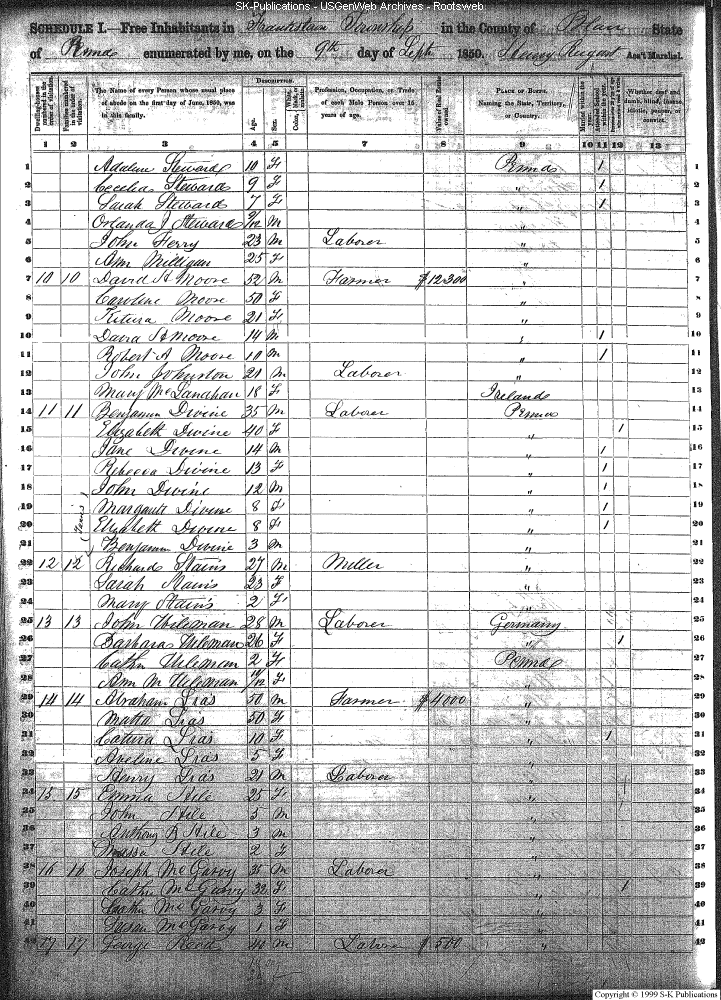 SK-Publications - USGenWeb Archives - Rootsweb
SCHEDULE I.—Free Inhabitants in Frankstown Township in the County of Blair State
of Penna enumerated by me, on the 9th day of Septr 1850. Henry August Ass't Marshal.
Dwelling-houses numbered in the order of visitation.
Families numbered in the order of visitation.
The Name of every Person whose usual place of abode on the first day of June, 1850, was in this family.
DESCRIPTION.
Age.
Sex.
White, black, or mulatto.
Profession, Occupation, or Trade of each Male Person over 15 years of age.
Value of Real Estate owned.
PLACE OF BIRTH. Naming the State, Territory, or Country.
Married within the year.
Attended School within the year.
Whether deaf and dumb, blind, insane, idiotic, pauper, or convict.
1 2 3 4 5 6 7 8 9 10 11 12 13
1 Adaline Steward 10 F Penna 1 1
2 Cecelia Steward 9 F " 1 2
3 Sarah Steward 7 F " 1 3
4 Orlanda J Steward 9/12 M " 4
5 John Ferry 23 M Laborer " 5
6 Ann Milligan 25 F " 6
7 10 10 David H Moore 52 M Farmer $12300 " 7
8 Caroline Moore 50 F " 8
9 Kitura Moore 21 F " 9
10 David H Moore 14 M " 1 10
11 Robert A Moore 10 M " 1 11
12 John Johnston 21 M Laborer " 12
13 Mary McLanahan 18 F Ireland 13
14 11 11 Benjamin Divine 35 M Laborer Penna 14
15 Elizabeth Divine 40 F " 1 15
16 Jane Divine 14 M " 1 16
17 Rebecca Divine 13 F " 1 17
18 John Divine 12 M " 1 18
19 Margaret Divine 8 F " 1 19
20 Elizabeth Divine 8 F " 1 20
(Twins)
21 Benjamin Divine 3 M " 21
22 12 12 Richard Stains 27 M Miller " 22
23 Sarah Stains 23 F " 23
24 Mary Stains 2 F " 24
25 13 13 John Uileman 28 M Laborer Germany 25
26 Barbara Uileman 26 F " 1 26
27 Cathn Uileman 2 F Penna 27
28 Ann M Uileman 11/12 F " 28
29 14 14 Abraham Lias 50 M Farmer $4000 " 29
30 Matta Lias 50 F " 30
31 Catura Lias 10 F " 1 31
32 Aveline Lias 5 F " 32
33 Henry Lias 21 M Laborer " 33
34 15 15 Emma Hile 25 F " 34
35 John Hile 5 M " 35
36 Anthony R Hile 3 M " 36
37 Hile 2 F " 37
38 16 16 Joseph McGarvy 35 M Laborer " 38
39 Cathn McGarvy 32 F " 1 39
40 McGarvy 3 F " 40
41 Susan McGarvy 1 F " 41
42 17 17 George Reed 40 M Laborer $500 " 42
Copyright © 1999 S-K Publications